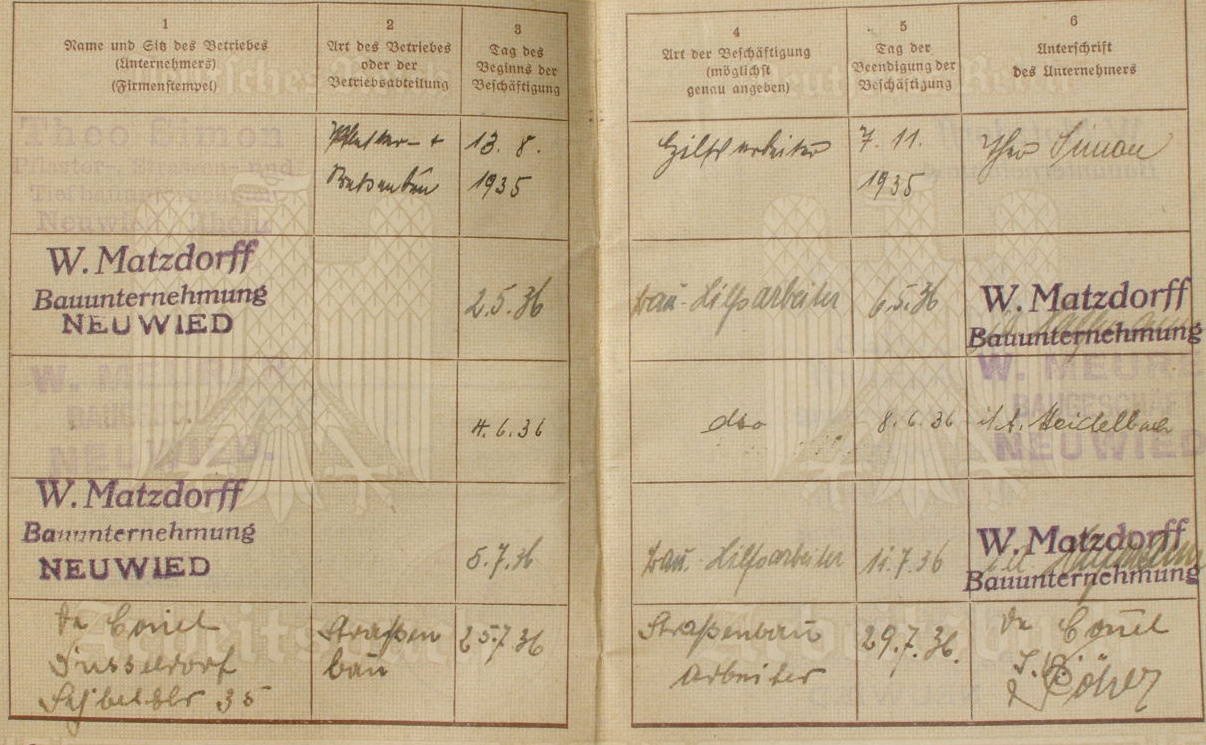 1
Name und Sitz des Betriebes
(Unternehmers)
(Firmenstempel)
2
Art des Betriebes
oder der
Betriebsabteilung
3
Tag des
Beginns der
Beschäftigung
4
Art der Beschäftigung
(möglichst
genau angeben)
5
Tag der
Beendigung der
Beschäftigung
6
Unterschrift
des Unternehmers
Theo Simon
Neuwied
13. 8.
1935
Hilfsarbeiter
7. 11.
1935
Theo Simon
W. Matzdorff
Bauunternehmung
NEUWIED
2.5.36
Bau-Hilfsarbeiter
6.5.36
W. Matzdorff
Bauunternehmung
W. MEURER
NEUWIED.
4.6.36
dto
8.6.36
W. MEURE
BAUGESCHÄFT
NEUWIED
W. Matzdorff
Bauunternehmung
NEUWIED
Bau-Hilfsarbeiter
W. Matzdorff
Bauunternehmung
Düsseldorf
35
Straßen
bau
25.7.36
Straßenbau
arbeiter
29.7.36.